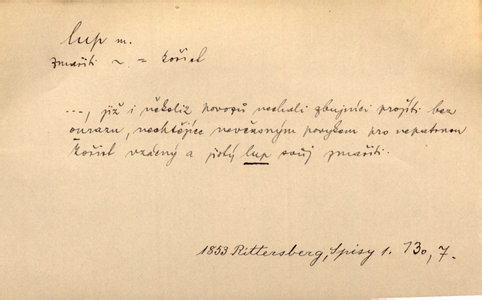 lup m.
zmařiti ~ = kořist
..., již i několik povozů nechali zbujníci projíti bez
úrazu, nechtějíce nevčasným povykem pro nepatrnou
kořist vzácný a jistý lup svůj zmařiti.
1853 Rittersberg, Spisy 1. 130, 7.